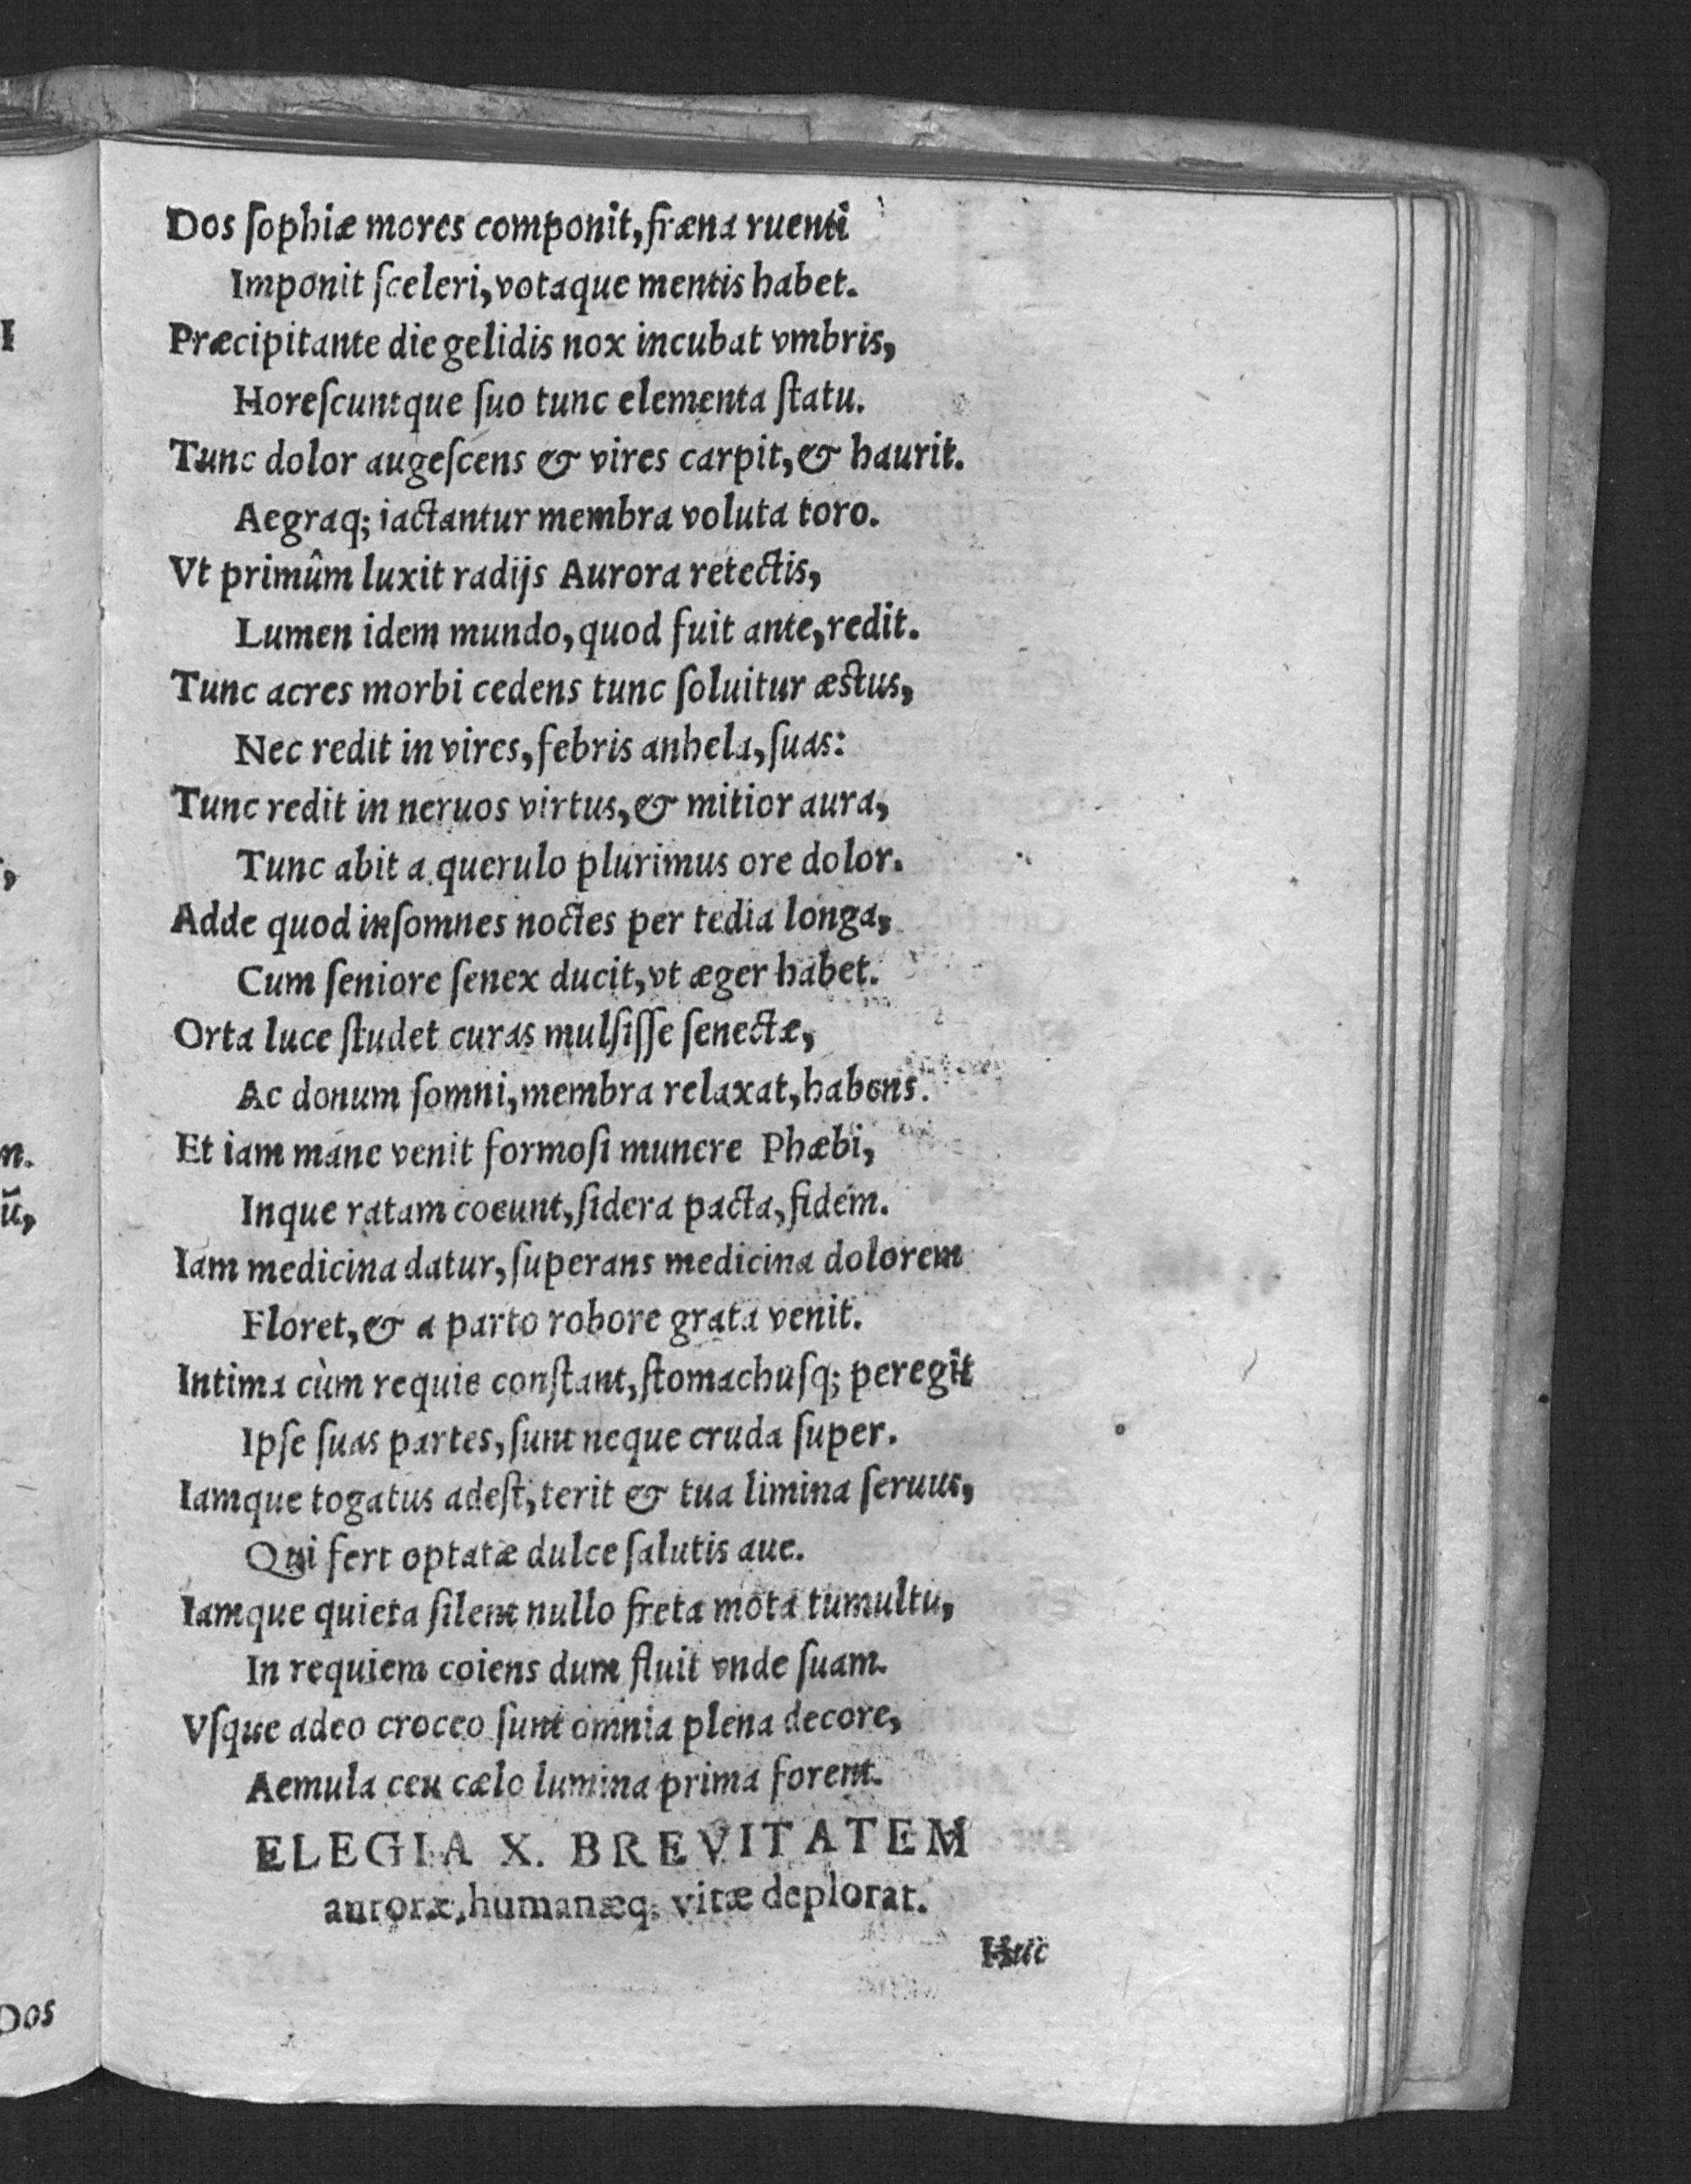 Dos ſophiæ mores componit, fræna ruenti
Imponit ſceleri, votaque mentis habet.
Præcipitante die gelidis nox incubat vmbris,
Horeſcuntque ſuo tunc elementa ſtatu.
Tunc dolor augeſcens & vires carpit, & haurit.
Aegraq; iactantur membra voluta toro.
Vt primûm luxit radijs Aurora retectis,
Lumen idem mundo, quod fuit ante, redit.
Tunc acres morbi cedens tunc ſoluitur æstus,
Nec redit in vires, febris anhela, ſuas:
Tunc redit in neruos virtus, & mitior aura,
Tunc abit a querulo plurimus ore dolor.
Adde quod inſomnes noctes per tedia longa,
Cum ſeniore ſenex ducit, vt æger habet.
Orta luce ſtudet curas mulſiſſe ſenectæ,
Ac donum ſomni, membra relaxat, habens.
Et iam mane venit formoſi munere Phæbi,
Inque ratam coeunt, ſidera pacta, fidem.
Iam medicina datur, ſuperans medicina dolorem
Floret, & a parto robore grata venit.
Intima cùm requie conſtant, ſtomachuſq; peregit
Ipſe ſuas partes, ſunt neque cruda ſuper.
Iamque togatus adeſt, terit & tua limina ſeruus,
Qui fert optatæ dulce ſalutis aue.
Iamque quieta ſilent nullo freta mota tumultu,
In requiem coiens dum fluit vnde ſuam.
Vſque adeo croceo ſunt omnia plena decore,
Aemula ceu cælo lumina prima forent.
ELEGIA X. BREVITATEM
auroræ, humanæq; vitæ deplorat.
Huic
I
,
n.
ũ,
Dos